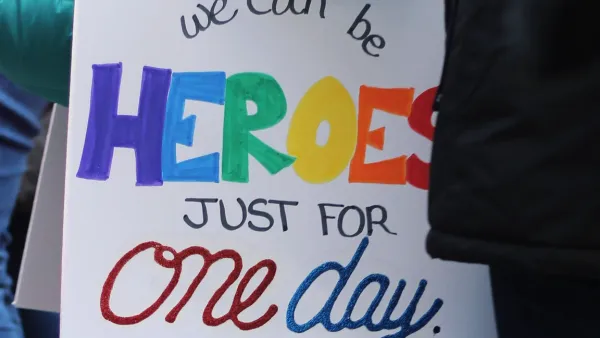 we can be
HEROES
JUST FOR
one day.